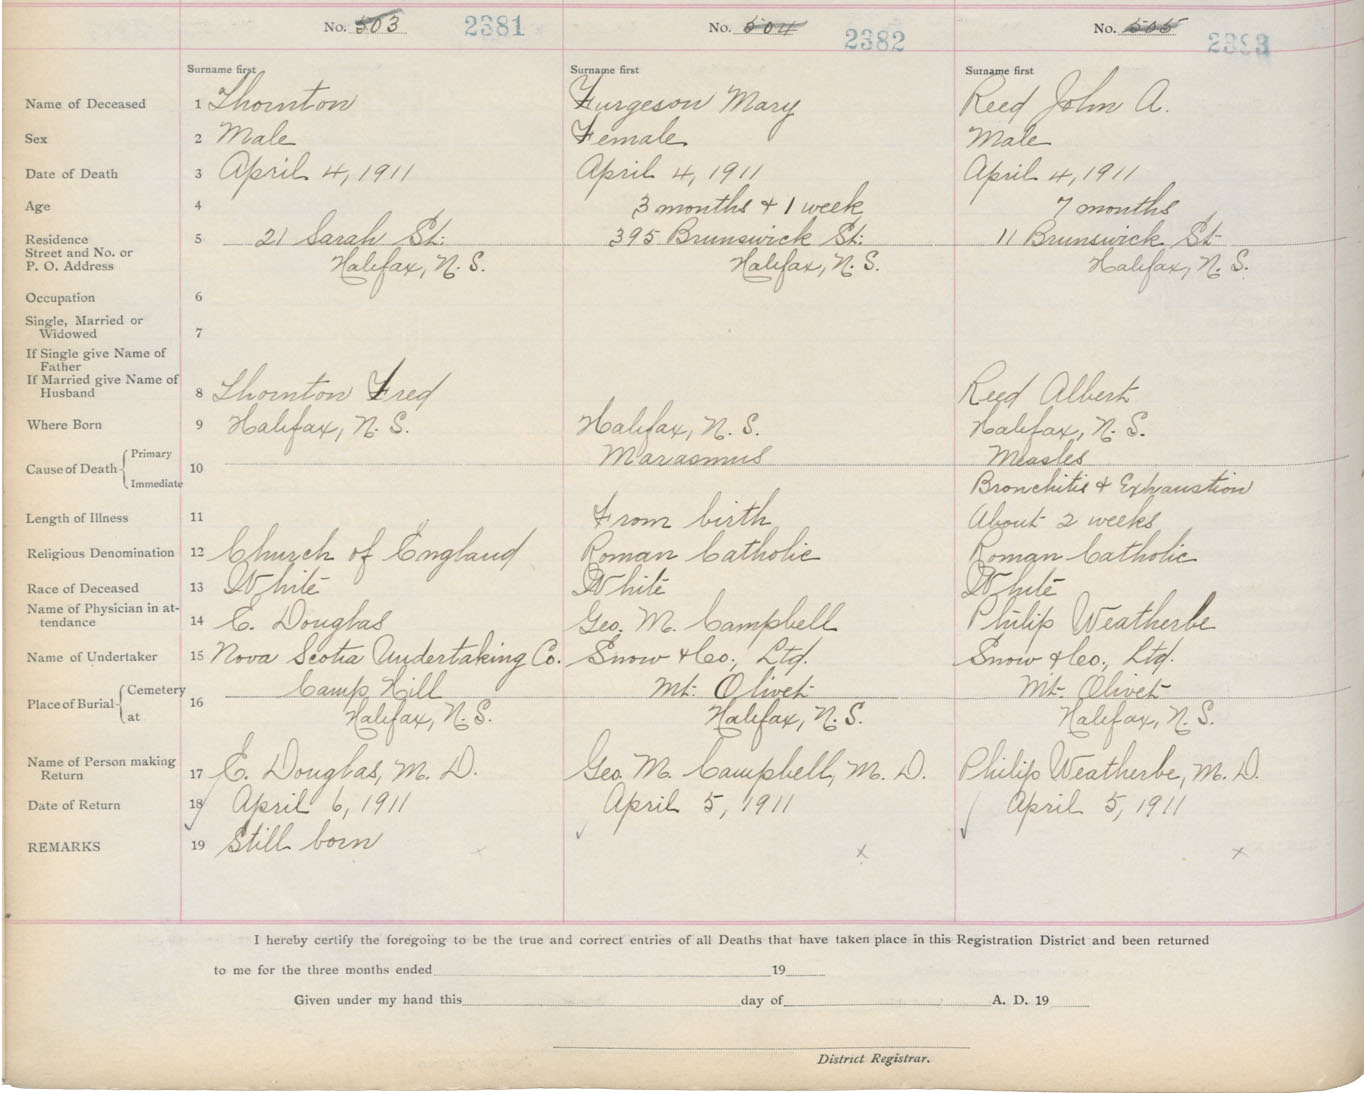 No. 503 2381 No. 504 2382 No. 505 2383
Surname first Surname first Surname first
Name of Deceased 1 Thornton Furgeson Mary Reed John A.
Sex 2 Male Female Male
Date of Death 3 April 4, 1911 April 4, 1911 April 4, 1911
Age 4 3 months & 1 week 7 months
Residence 5 21 Sarah St: 395 Brunswick St: 11 Brunswick St
Street and No. or
P. O. Address Halifax, N. S. Halifax, N. S. Halifax, N. S.
Occupation 6
Single, Married or
Widowed 7
If Single give Name of
Father
If Married give Name of
Husband 8 Thornton Fred Reed Albert
Where Born 9 Halifax, N. S. Halifax, N. S. Halifax, N. S.
Cause of Death Primary 10 Marasmus Measles
Immediate Bronchitis & Exhaustion
Length of Illness 11 From birth About 2 weeks
Religious Denomination 12 Church of England Roman Catholic Roman Catholic
Race of Deceased 13 White White White
Name of Physician in at-
tendance 14 E. Douglas Geo. M. Campbell Philip Weatherbe
Name of Undertaker 15 Nova Scotia Undertaking Co. Snow & Co., Ltd. Snow & Co., Ltd.
Place of Burial Cemetery 16 Camp Hill Mt: Olivet Mt. Olivet
at Halifax, N. S. Halifax, N. S. Halifax, N. S.
Name of Person making
Return 17 E. Douglas, M. D. Geo. M. Campbell, M. D. Philip Weatherbe, M. D.
Date of Return 18 April 6, 1911 April 5, 1911 April 5, 1911
REMARKS 19 Still born
I hereby certify the foregoing to be the true and correct entries of all Deaths that have taken place in this Registration District and been returned
to me for the three months ended 19
Given under my hand this day of A. D. 19
District Registrar.